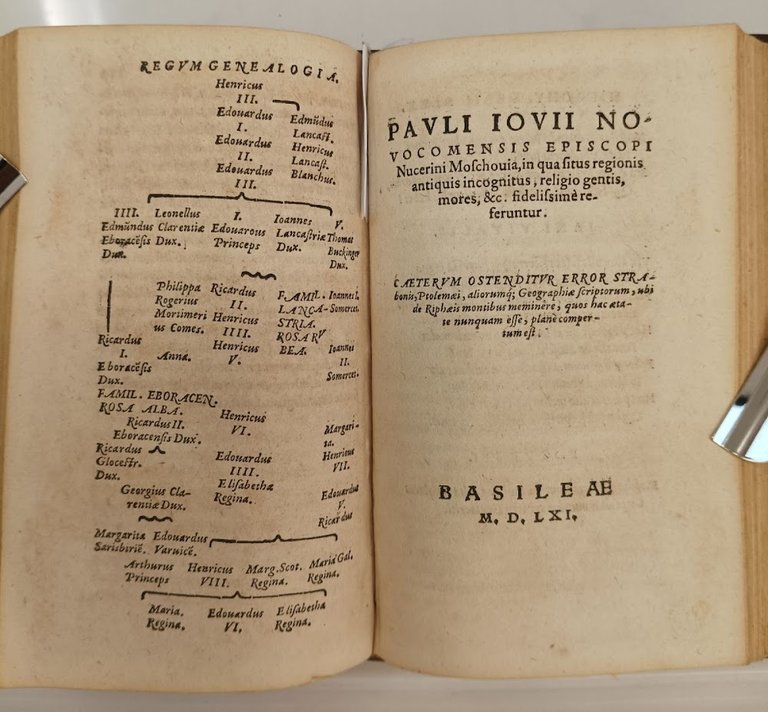 REGVM GENEALOGIA.
Henricus
III.
Edouardus Edmūdus
I. Lancast.
Edouardus Henricus
II. Lancast.
Edouardus Blanchus.
III.
IIII. Leonellus I. Ioannes V.
Edmūndus Clarentiæ Edouarous Lancastriæ Thomas
Eboracēsis Dux. Princeps Dux. Buckinger
Dux. Dux.
Philippa Ricardus FAMIL. Ioannes I.
Rogerius II. LANCA- Somercet.
Mortimeri Henricus STRIA.
us Comes. IIII. ROSA RV
Ricardus Henricus BEA. Ioannes
I. Anna. V. II.
Eboracēsis Somercet.
Dux.
FAMIL. EBORACEN.
ROSA ALBA. Henricus
Ricardus II. VI. Margari-
Eboracensis Dux. ta.
Ricardus Edouardus Henricus
Glocestr. IIII. VII.
Dux. Elisabetha
Georgius Cla- Regina. Edouardus
rentiæ Dux. V.
Ricardus
Margarita Edouardus
Sarisbiriē. Varuicē.
Arthurus Henricus Marg. Scot. Maria Gal.
Princeps VIII. Regina. Regina.
Maria. Edouardus Elisabetha
Regina. VI. Regina.
PAVLI IOVII NO-
VOCOMENSIS EPISCOPI
Nucerini Moschouia, in qua situs regionis
antiquis incognitus, religio gentis,
mores, &c. fidelissimè re-
feruntur.
CAETERVM OSTENDITVR ERROR STRA-
bonis, Ptolemæi, aliorumq; Geographiæ scriptorum, ubi
de Riphæis montibus meminêre, quos hac æta-
te nunquam esse, planè comper-
tum est.
BASILEAE
M. D. LXI.